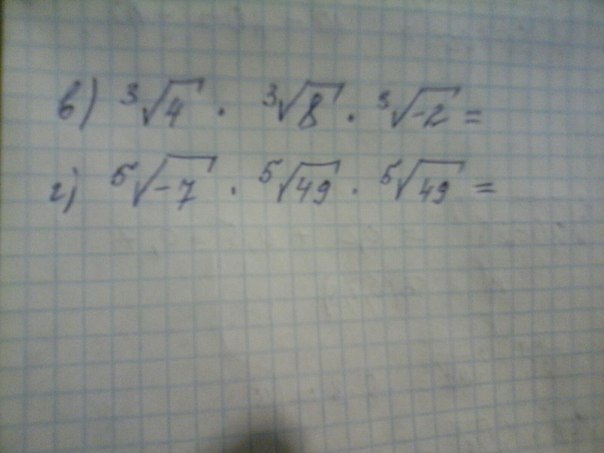 в) ³√4 · ³√8 · ³√-2 =
г) ⁵√-7 · ⁵√49 · ⁵√49 =